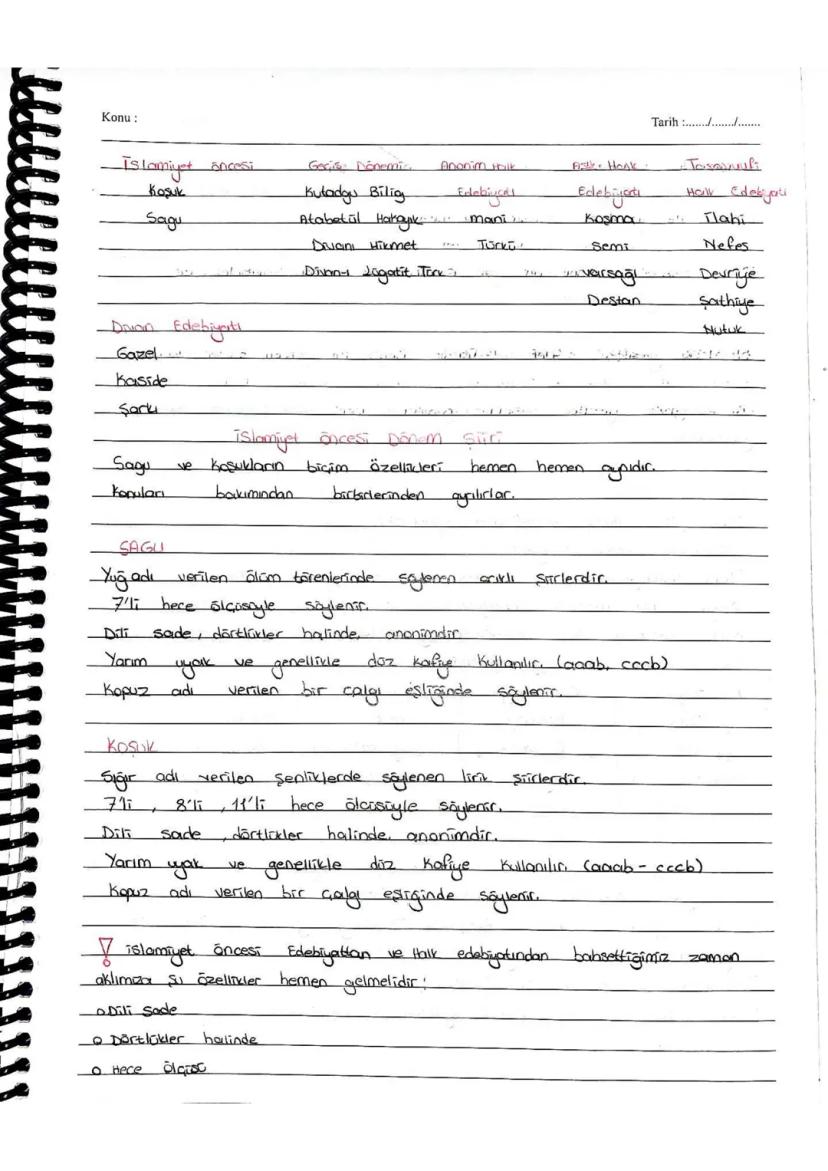 Konu :
Tarih :....../....../......
İslamiyet öncesi Geçiş Dönemi Anonim Halk Aşık Halk Tasavvufi
Koşuk Kutadgu Bilig Edebiyatı Edebiyatı Halk Edebiyatı
Sagu Atabetül Hakayık mani Koşma İlahi
Divanı Hikmet Türkü Semi Nefes
Divan-ı Lügatit Türk varsağı Devriye
Destan Şathiye
Divan Edebiyatı Nutuk
Gazel
Kaside
Şarkı
İslamiyet öncesi Dönem Şiiri
Sagu ve Koşukların biçim özellikleri hemen hemen aynıdır.
Konuları bakımından birbirlerinden ayrılırlar.
SAGU
Yuğ adı verilen ölüm törenlerinde söylenen şiirlerdir.
7'li hece ölçüsüyle söylenir.
Dili sade, dörtlükler halinde, anonimdir
Yarım uyak ve genellikle düz kafiye kullanılır. (aaab, cccb)
Kopuz adı verilen bir çalgı eşliğinde söylenir.
KOŞUK
Sığır adı verilen şenliklerde söylenen lirik şiirlerdir.
7'li , 8'li , 11'li hece ölçüsüyle söylenir.
Dili sade , dörtlükler halinde, anonimdir.
Yarım uyak ve genellikle düz Kafiye Kullanılır. (aaab - cccb)
Kopuz adı verilen bir çalgı eşiğinde söylenir.
! islamiyet öncesi Edebiyattan ve Halk edebiyatından bahsettiğimiz zaman
aklımıza şu özellikler hemen gelmelidir :
o Dili sade
o Dörtlükler halinde
o Hece ölçüsü